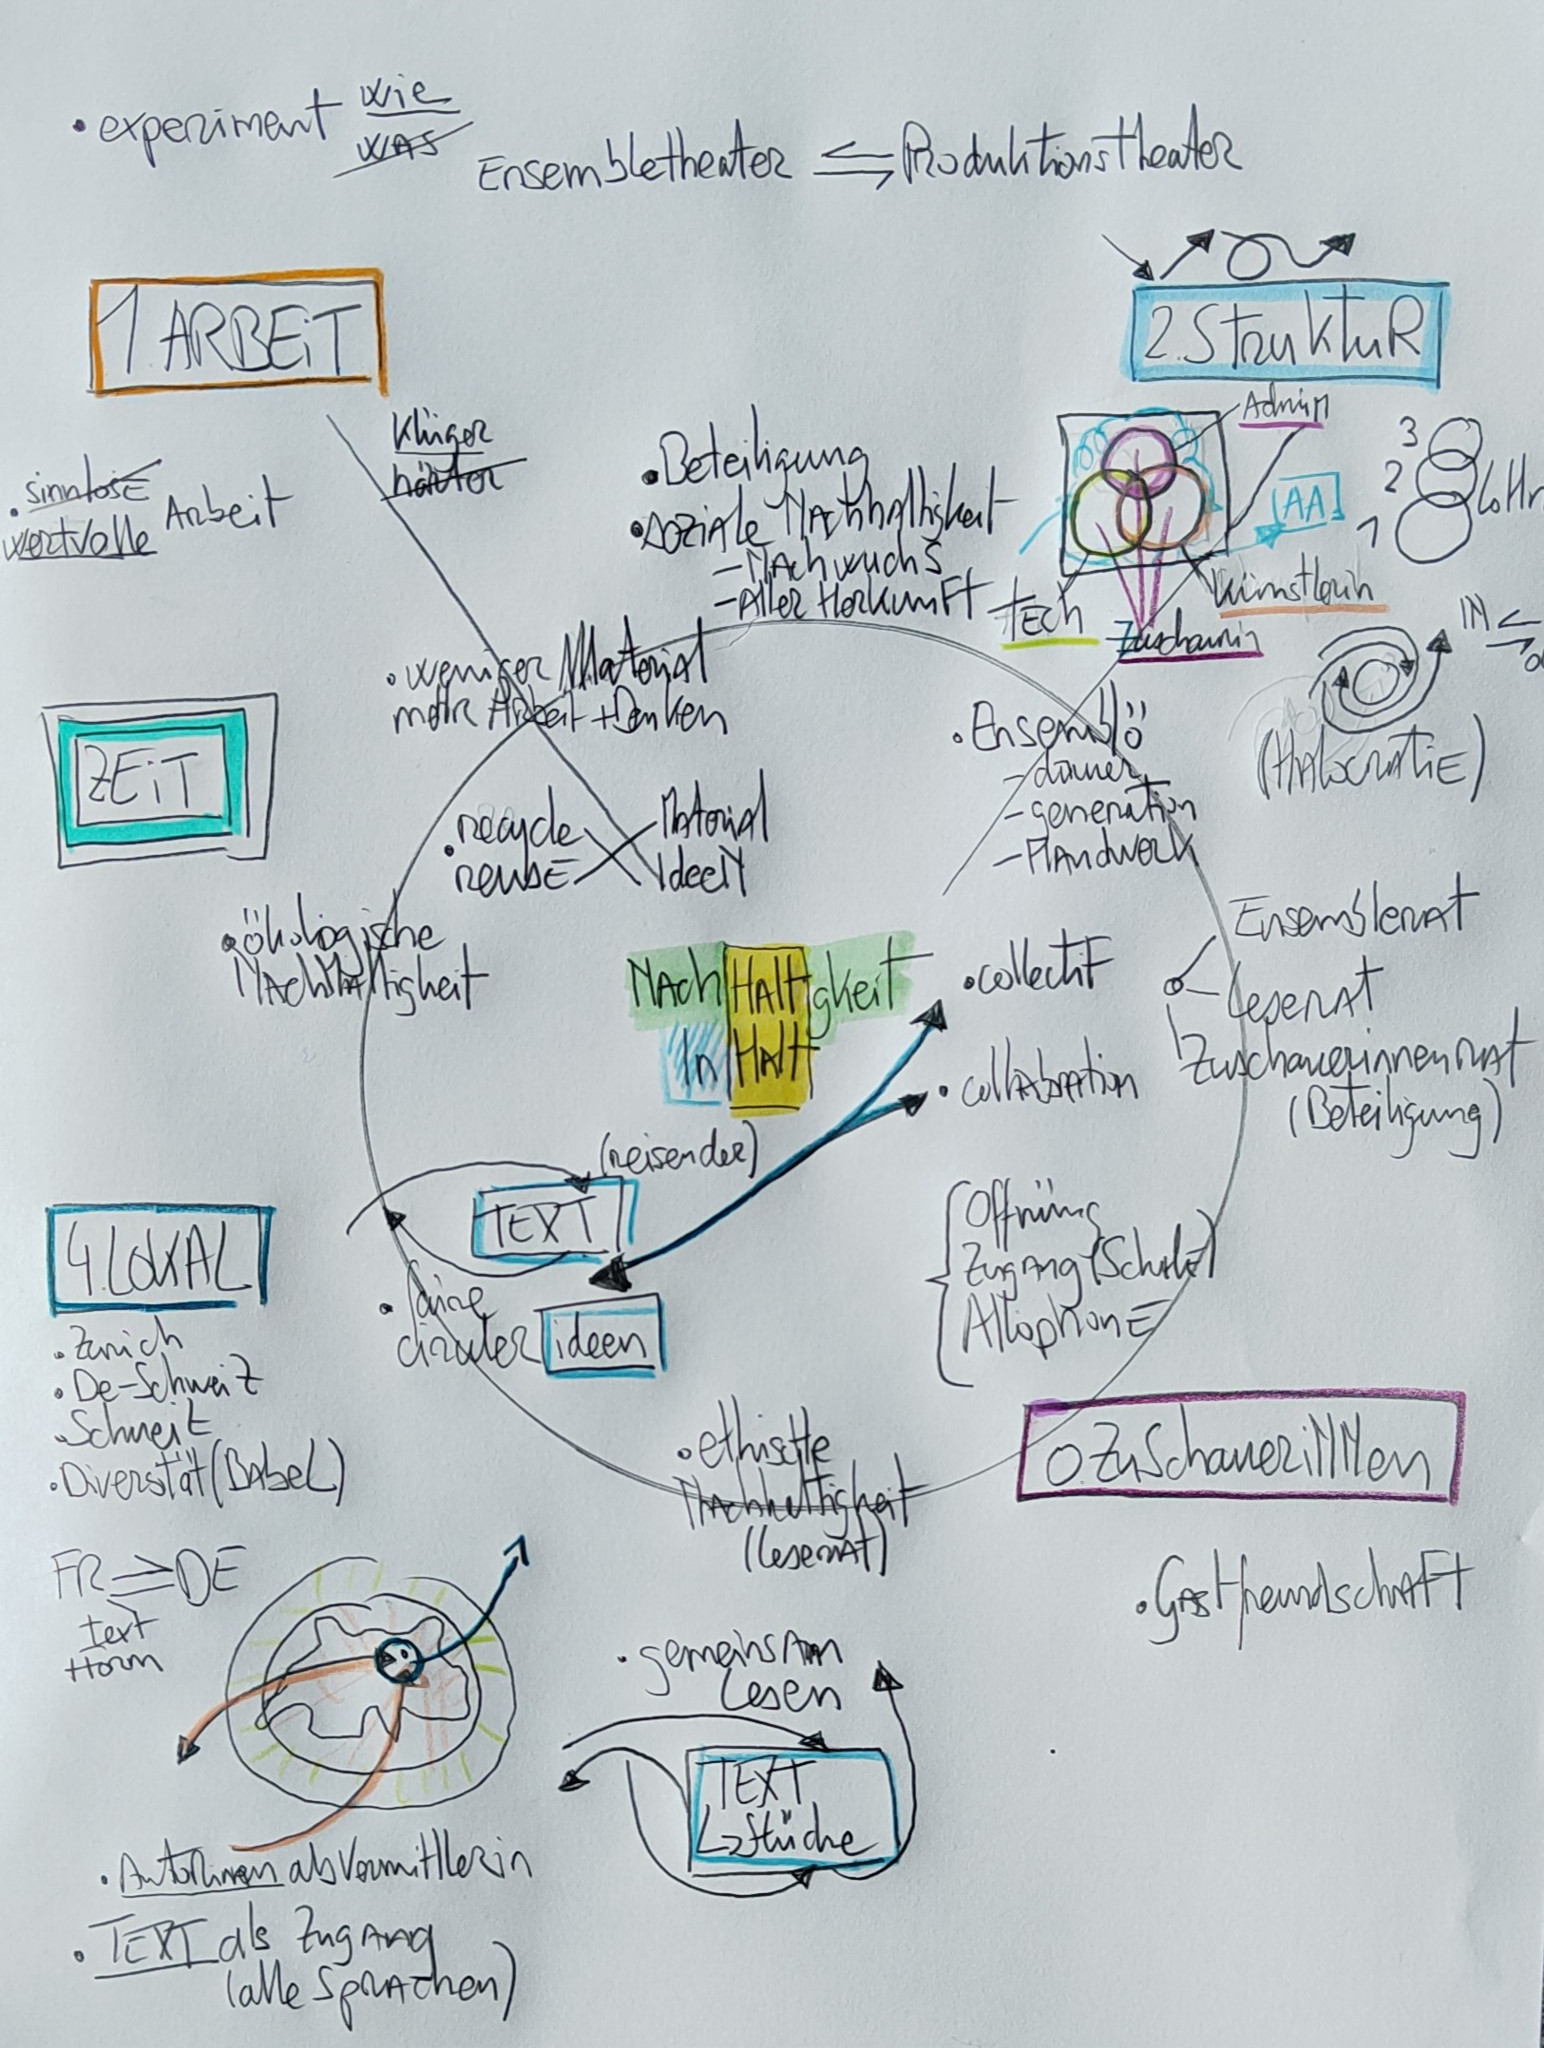 • experiment wie
was
Ensembletheater ⇌ Produktionstheater
1. ARBEiT
2. StruktuR
Klüger
härter
• sinnlose
wertvolle Arbeit
• Beteiligung
• soziale Nachhaltigkeit
- Nachwuchs
- Aller Herkunft
Admin
AA
3
2
1
Tech
Künstlerin
Zuschauerin
IN
(Halocratie)
• weniger Material
mehr Arbeit + Denken
ZEiT
• Ensemblö
- dauer
- generation
- Handwerk
• recycle
reuse
Material
Ideen
• ökologische
Nachhaltigkeit
NachHaltigkeit
InHalt
• collectif
• collabration
Ensemblerat
Leserat
Zuschauerinnenrat
(Beteiligung)
(reisender)
TEXT
4. LOKAL
• Zürich
• De-Schweiz
• Schweiz
• Diversität (Babel)
• faire
cirkuler ideen
Öffnüng
Zugang (Schule)
Allophone
• ethische
Nachhaltigkeit
(Leserat)
0. ZuSchaueriNNen
• Gastfreundschaft
FR ⇌ DE
Text
Form
• gemeinsam
Lesen
TEXT
↳ Stücke
• Autorinnen als Vermittlerin
• TEXT als Zugang
(alle Sprachen)